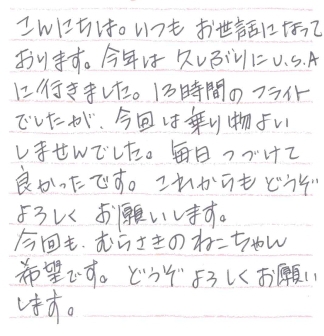 こんにちは。いつも お世話になって
おります。今年は 久しぶりにU.S.A
に行きました。13時間の フライト
でしたが、今回は乗り物よい
しませんでした。毎日 つづけて
良かったです。これからも どうぞ
よろしく お願いします。
今回も、むらさきの ねこちゃん
希望です。どうぞ よろしくお願い
します。